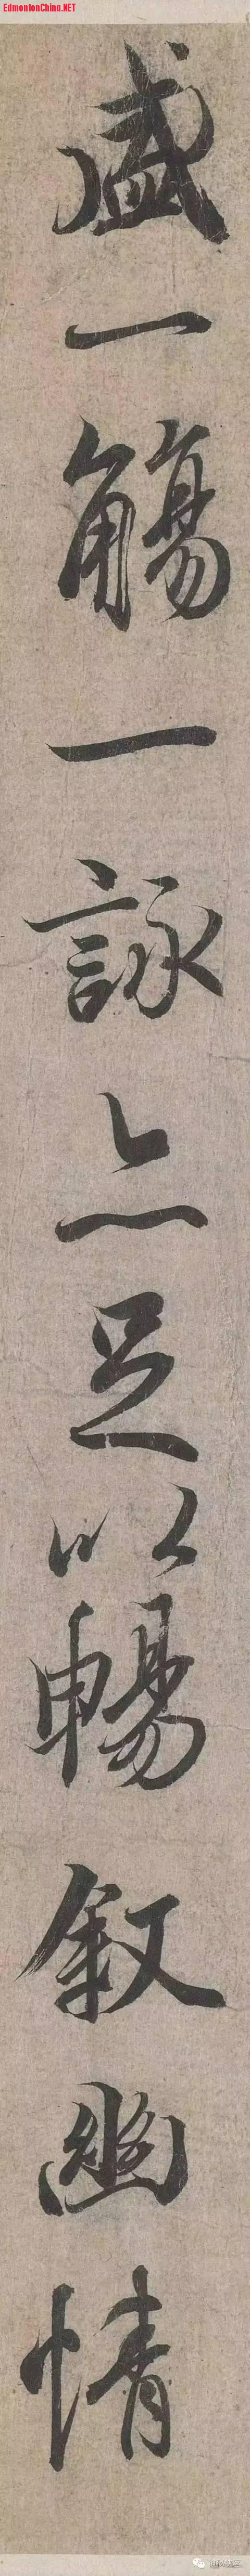 EdmontonChina.NET
盛一觴一詠亦足以暢叙幽情